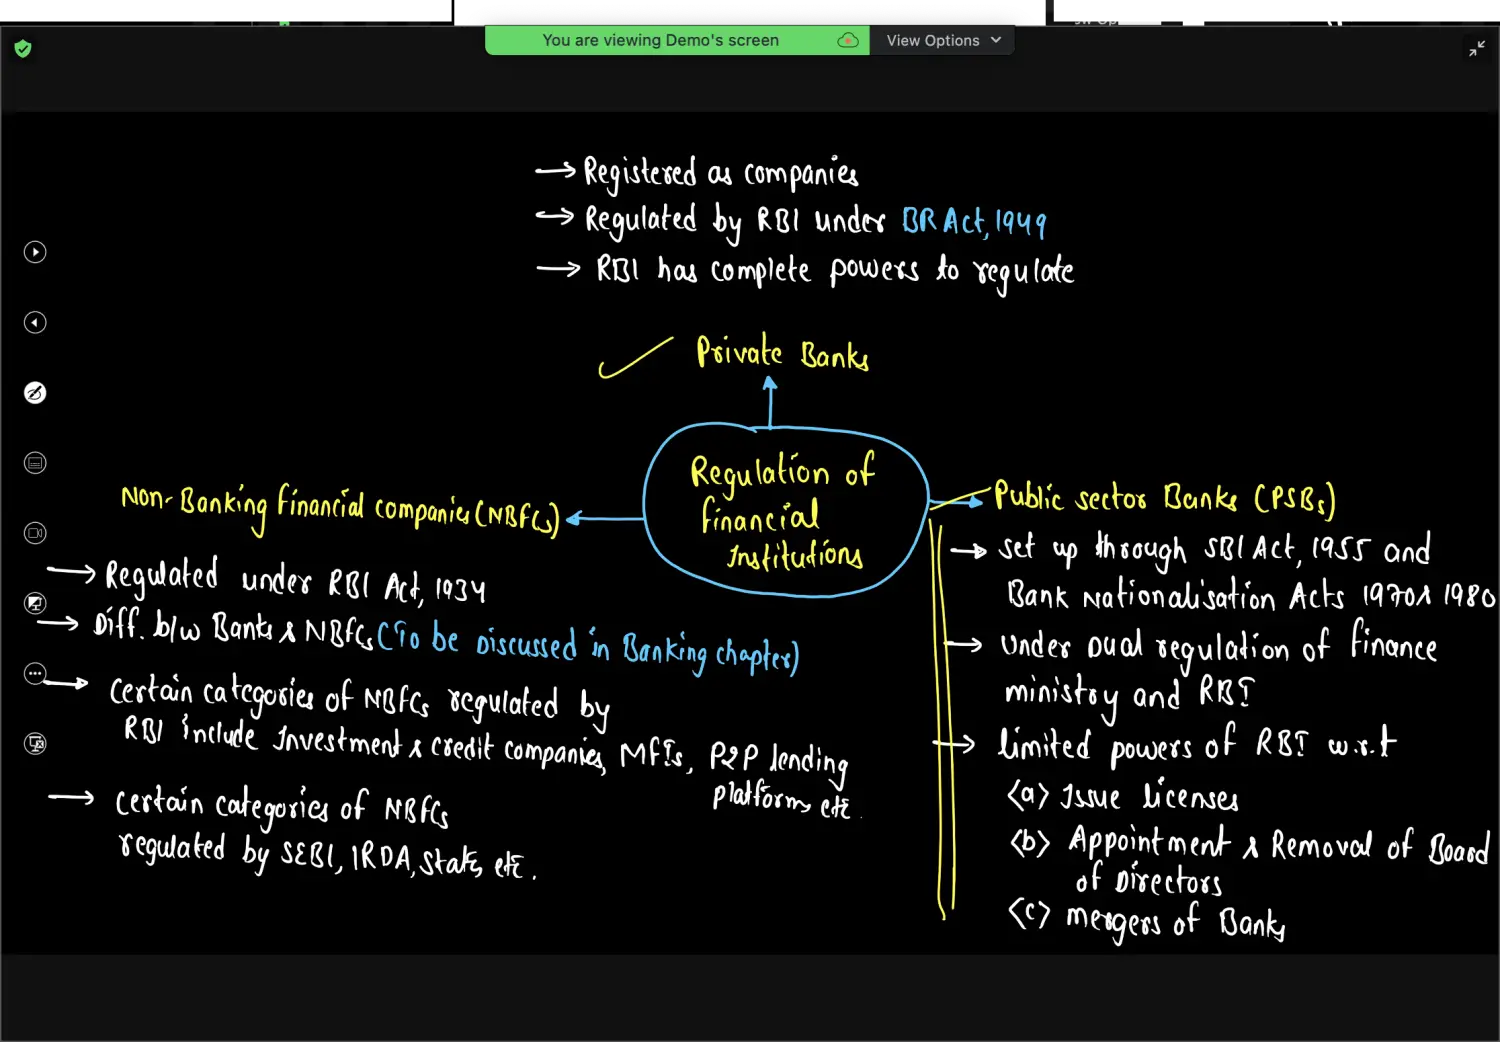 You are viewing Demo's screen
View Options
→ Registered as companies
→ Regulated by RBI under BR Act, 1949
→ RBI has complete powers to regulate
Private Banks
Regulation of
financial
Institutions
Non-Banking financial companies (NBFCs)
→ Regulated under RBI Act, 1934
→ Diff. b/w Banks & NBFCs (To be Discussed in Banking chapter)
→ Certain categories of NBFCs regulated by
RBI include Investment & credit companies, MFIs, P2P lending
platforms etc.
→ Certain categories of NBFCs
regulated by SEBI, IRDA, State, etc.
Public sector Banks (PSBs)
→ set up through SBI Act, 1955 and
Bank Nationalisation Acts 1970 & 1980
→ Under Dual regulation of finance
ministry and RBI
→ limited powers of RBI w.r.t
(a) Issue licenses
(b) Appointment & Removal of Board
of Directors
(c) mergers of Banks